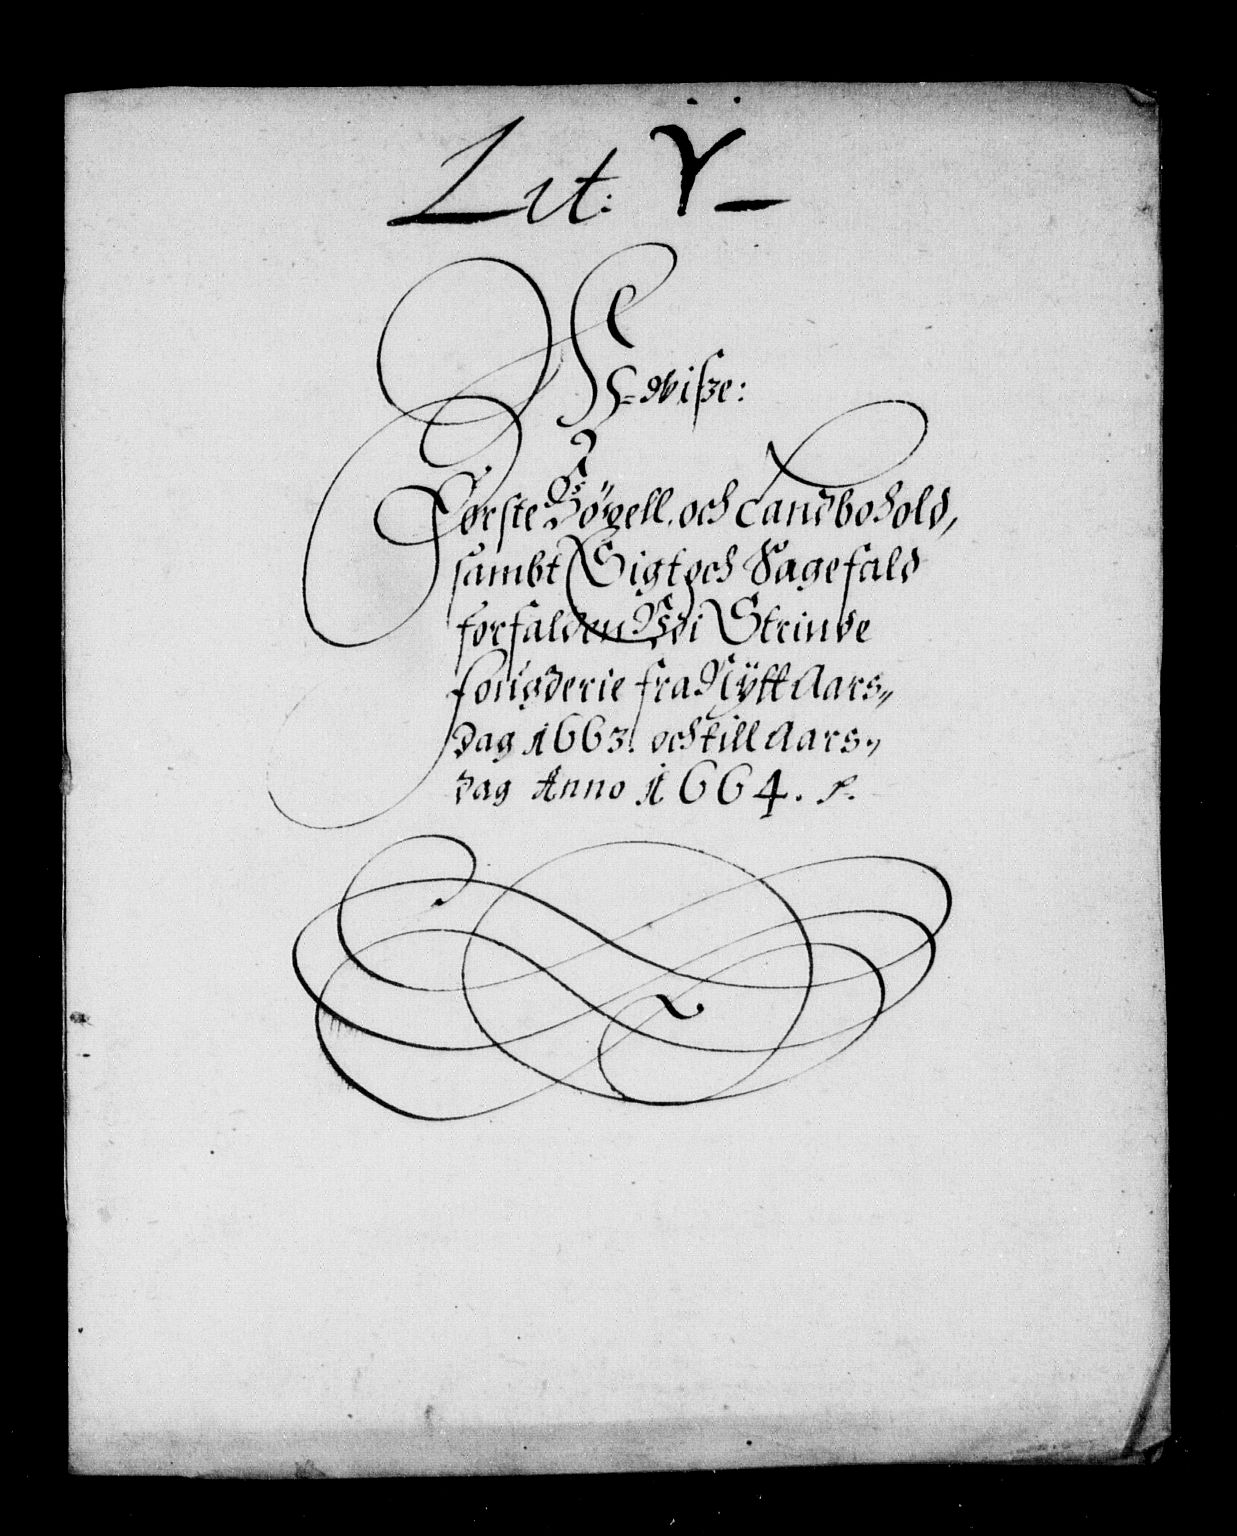 Lit: Ÿ
Beviße:
Første Böxell. och Landbohold,
sambt Sigt och Sagefald
forfalden Udi Strinde
fougderie fra Nÿtt Aars„
dag 1663. och till Aars„
dag Anno 1664.